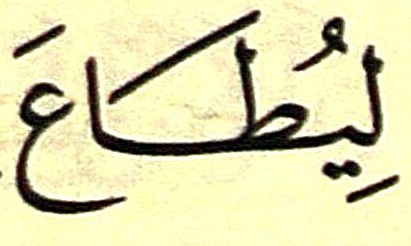 لِيُطَاعَ